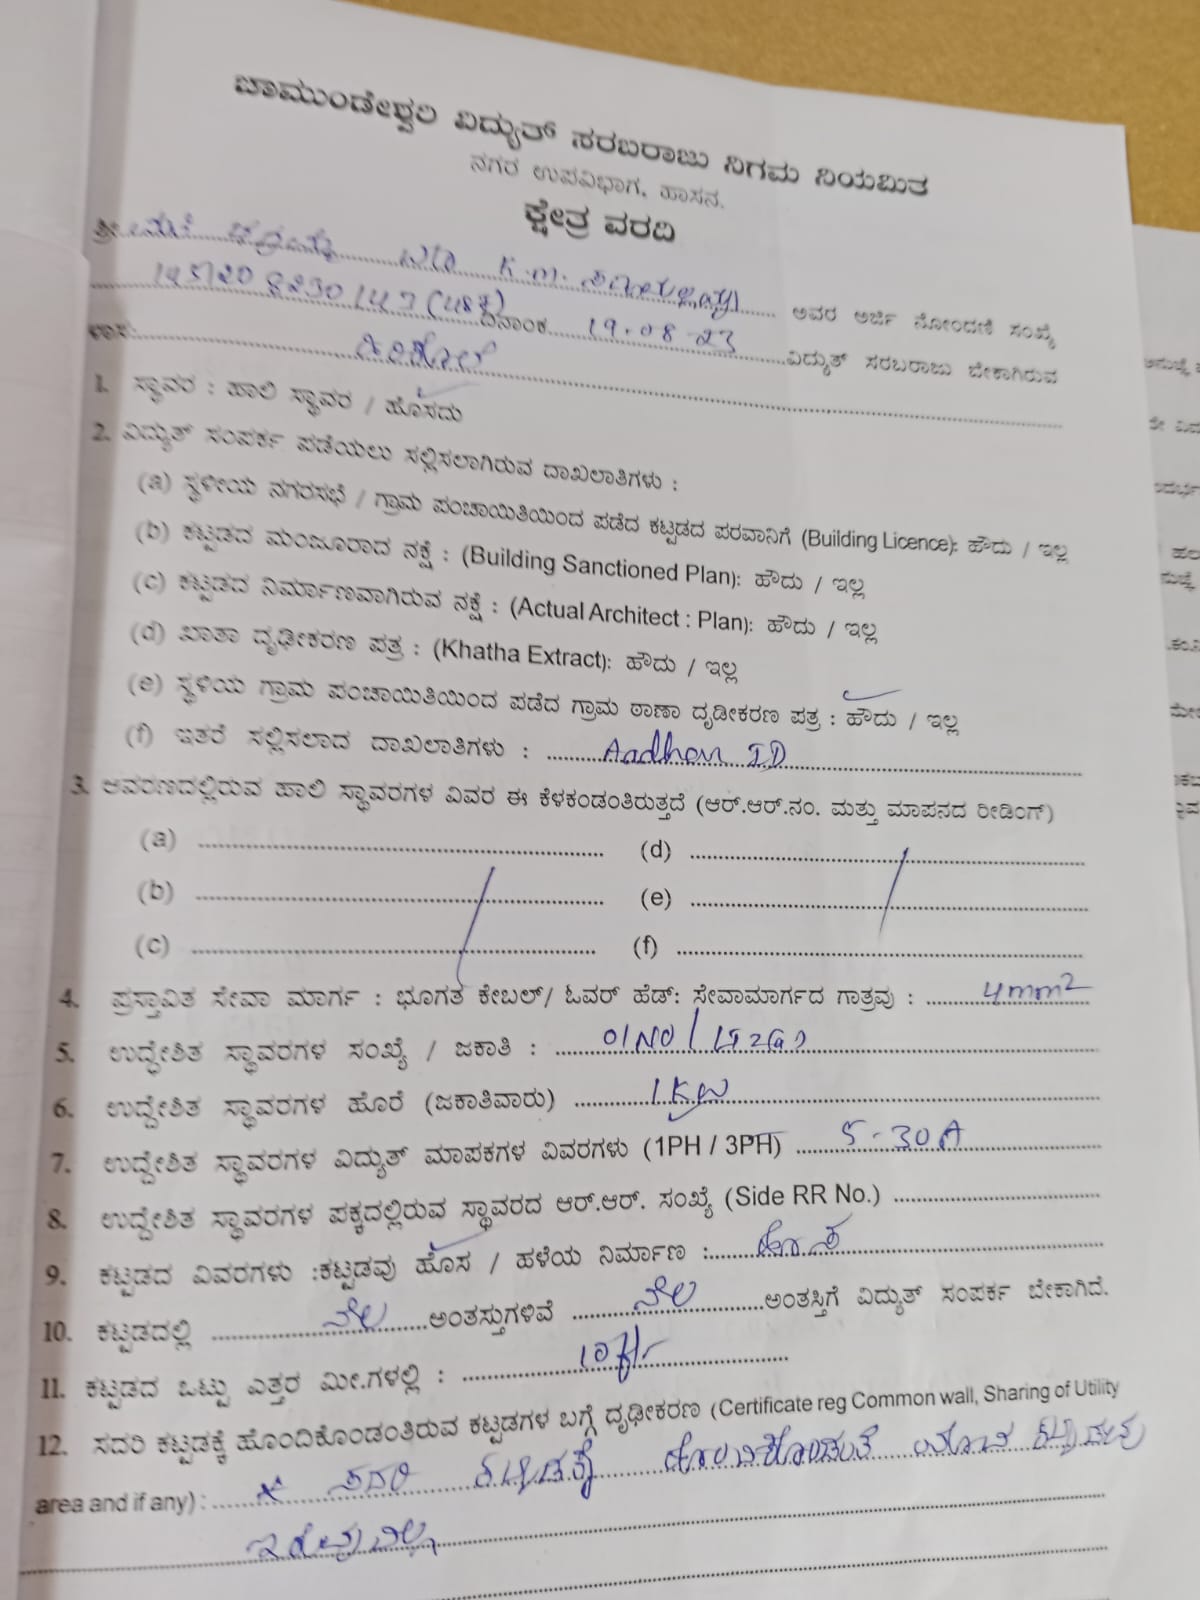 ಚಾಮುಂಡೇಶ್ವರಿ ವಿದ್ಯುತ್ ಸರಬರಾಜು ನಿಗಮ ನಿಯಮಿತ
ನಗರ ಉಪವಿಭಾಗ, ಹಾಸನ.
ಕ್ಷೇತ್ರ ವರದಿ
ಶ್ರೀ K.M. ಅವರ ಅರ್ಜಿ ನೋಂದಣಿ ಸಂಖ್ಯೆ
ದಿನಾಂಕ 19.08.23 ವಿದ್ಯುತ್ ಸರಬರಾಜು ಬೇಕಾಗಿರುವ
1. ಸ್ಥಾವರ : ಹಾಲಿ ಸ್ಥಾವರ / ಹೊಸದು
2. ವಿದ್ಯುತ್ ಸಂಪರ್ಕ ಪಡೆಯಲು ಸಲ್ಲಿಸಲಾಗಿರುವ ದಾಖಲಾತಿಗಳು :
(a) ಸ್ಥಳೀಯ ನಗರಸಭೆ / ಗ್ರಾಮ ಪಂಚಾಯಿತಿಯಿಂದ ಪಡೆದ ಕಟ್ಟಡದ ಪರವಾನಿಗೆ (Building Licence): ಹೌದು / ಇಲ್ಲ
(b) ಕಟ್ಟಡದ ಮಂಜೂರಾದ ನಕ್ಷೆ : (Building Sanctioned Plan): ಹೌದು / ಇಲ್ಲ
(c) ಕಟ್ಟಡದ ನಿರ್ಮಾಣವಾಗಿರುವ ನಕ್ಷೆ : (Actual Architect : Plan): ಹೌದು / ಇಲ್ಲ
(d) ಖಾತಾ ದೃಢೀಕರಣ ಪತ್ರ : (Khatha Extract): ಹೌದು / ಇಲ್ಲ
(e) ಸ್ಥಳಿಯ ಗ್ರಾಮ ಪಂಚಾಯಿತಿಯಿಂದ ಪಡೆದ ಗ್ರಾಮ ಠಾಣಾ ದೃಡೀಕರಣ ಪತ್ರ : ಹೌದು / ಇಲ್ಲ
(f) ಇತರೆ ಸಲ್ಲಿಸಲಾದ ದಾಖಲಾತಿಗಳು : Aadhar ID
3. ಆವರಣದಲ್ಲಿರುವ ಹಾಲಿ ಸ್ಥಾವರಗಳ ವಿವರ ಈ ಕೆಳಕಂಡಂತಿರುತ್ತದೆ (ಆರ್.ಆರ್.ನಂ. ಮತ್ತು ಮಾಪನದ ರೀಡಿಂಗ್)
(a) (d)
(b) (e)
(c) (f)
4. ಪ್ರಸ್ತಾವಿತ ಸೇವಾ ಮಾರ್ಗ : ಭೂಗತ ಕೇಬಲ್/ ಓವರ್ ಹೆಡ್: ಸೇವಾಮಾರ್ಗದ ಗಾತ್ರವು : 4mm²
5. ಉದ್ಧೇಶಿತ ಸ್ಥಾವರಗಳ ಸಂಖ್ಯೆ / ಜಕಾತಿ : 01NO / LT2(a)
6. ಉದ್ದೇಶಿತ ಸ್ಥಾವರಗಳ ಹೊರೆ (ಜಕಾತಿವಾರು) 1KW
7. ಉದ್ದೇಶಿತ ಸ್ಥಾವರಗಳ ವಿದ್ಯುತ್ ಮಾಪಕಗಳ ವಿವರಗಳು (1PH / 3PH) 5-30A
8. ಉದ್ದೇಶಿತ ಸ್ಥಾವರಗಳ ಪಕ್ಕದಲ್ಲಿರುವ ಸ್ಥಾವರದ ಆರ್.ಆರ್. ಸಂಖ್ಯೆ (Side RR No.)
9. ಕಟ್ಟಡದ ವಿವರಗಳು :ಕಟ್ಟಡವು ಹೊಸ / ಹಳೆಯ ನಿರ್ಮಾಣ : ಹೊಸ
10. ಕಟ್ಟಡದಲ್ಲಿ ನೆಲ ಅಂತಸ್ತುಗಳಿವೆ ನೆಲ ಅಂತಸ್ತಿಗೆ ವಿದ್ಯುತ್ ಸಂಪರ್ಕ ಬೇಕಾಗಿದೆ.
11. ಕಟ್ಟಡದ ಒಟ್ಟು ಎತ್ತರ ಮೀ.ಗಳಲ್ಲಿ : 10
12. ಸದರಿ ಕಟ್ಟಡಕ್ಕೆ ಹೊಂದಿಕೊಂಡಂತಿರುವ ಕಟ್ಟಡಗಳ ಬಗ್ಗೆ ದೃಢೀಕರಣ (Certificate reg Common wall, Sharing of Utility
area and if any) : ಸದರಿ ಕಟ್ಟಡಕ್ಕೆ ಹೊಂದಿಕೊಂಡಂತೆ ಯಾವ ಕಟ್ಟಡವು
ಇರುವುದಿಲ್ಲ